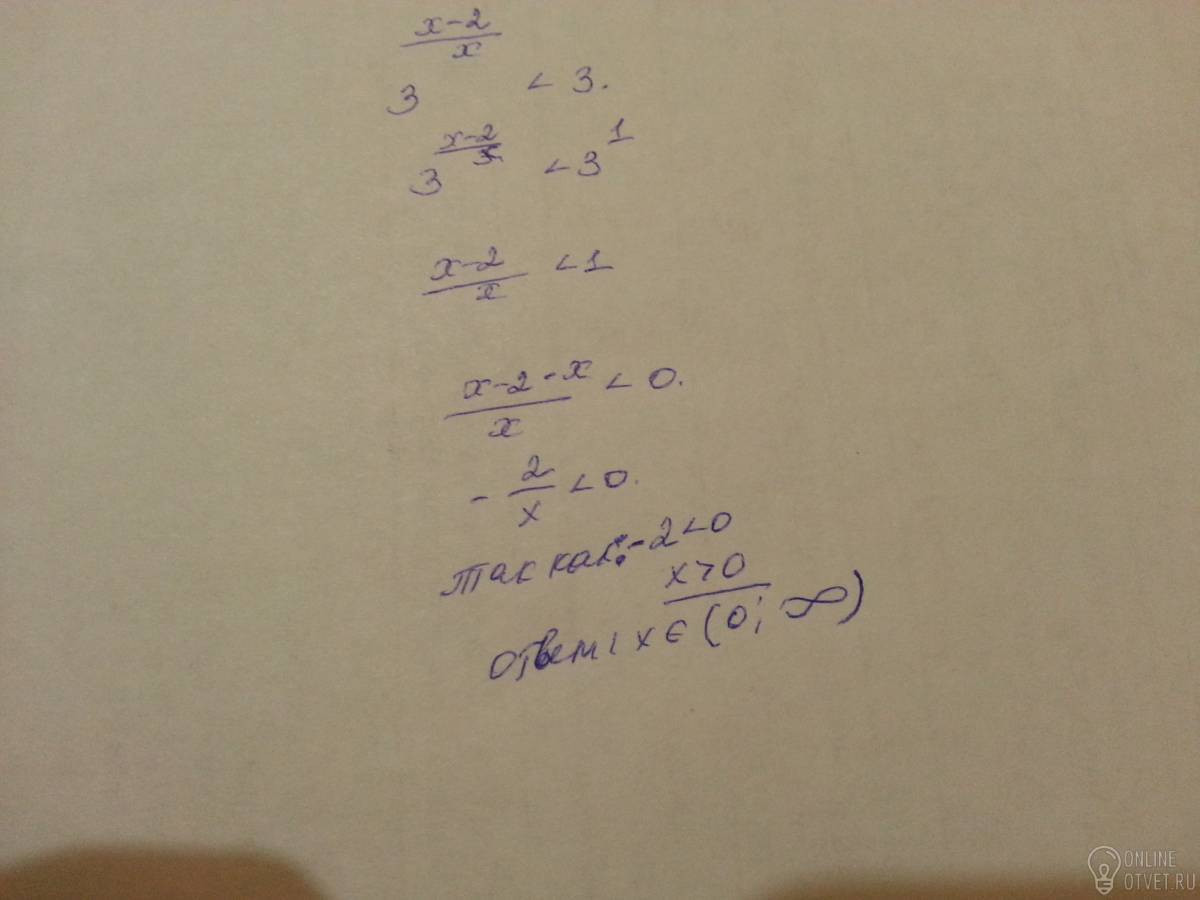 x-2
x
3 < 3.
x-2
x
3 < 3¹
x-2
x < 1
x-2-x
x < 0.
- 2
x < 0.
так как: -2<0
x>0
ответ: x ∈ (0; ∞)
ONLINE
OTVET.RU